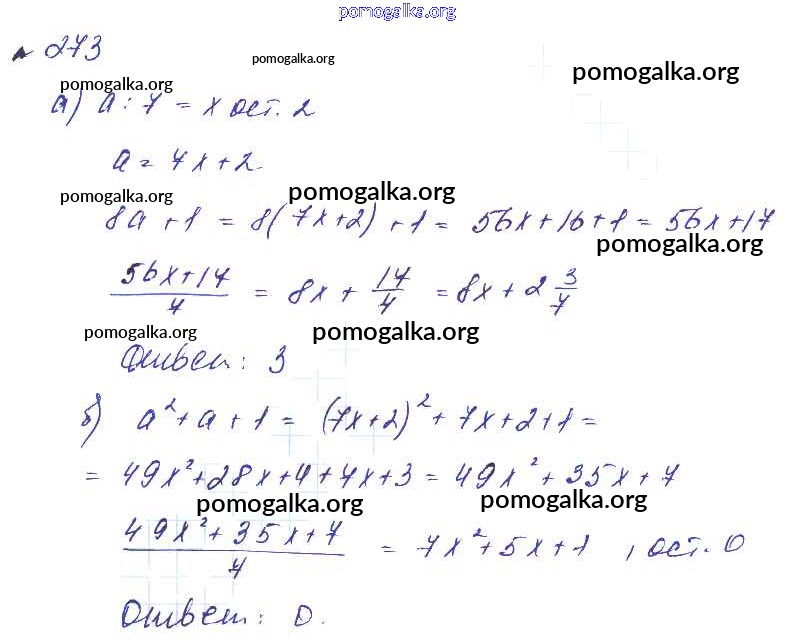 pomogalka.org
№ 273
pomogalka.org
pomogalka.org
pomogalka.org
а) a : 7 = x ост. 2
a = 7x + 2
pomogalka.org
pomogalka.org
8a + 1 = 8(7x+2) + 1 = 56x + 16 + 1 = 56x + 17
pomogalka.org
(56x+17)/7 = 8x + 17/7 = 8x + 2 3/7
pomogalka.org
pomogalka.org
Ответ: 3
б) a² + a + 1 = (7x+2)² + 7x + 2 + 1 =
= 49x² + 28x + 4 + 7x + 3 = 49x² + 35x + 7
pomogalka.org
pomogalka.org
(49x² + 35x + 7)/7 = 7x² + 5x + 1 , ост. 0
Ответ: 0.